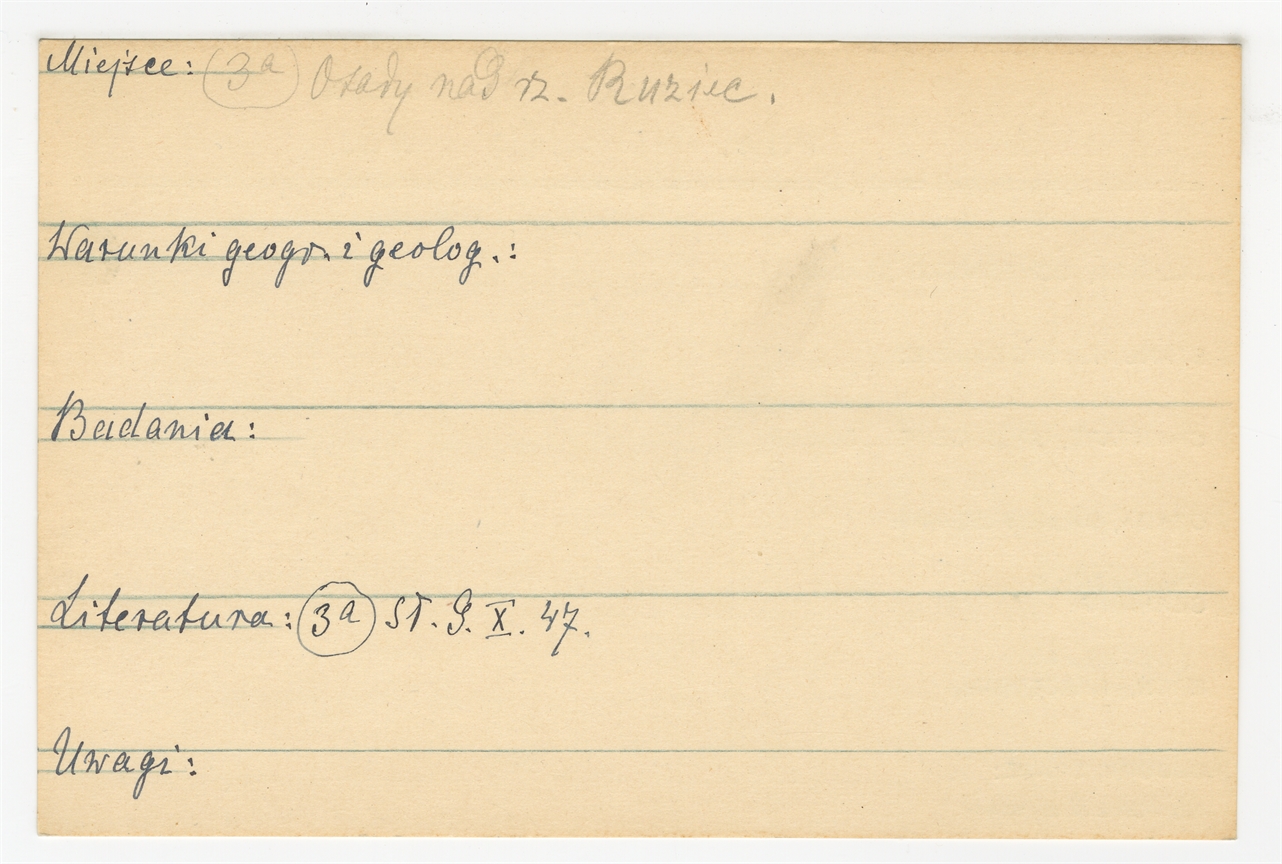 Miejsce: (3a) Osady nad rz. Ruziec.
Warunki geogr. i geolog.:
Badania:
Literatura: (3a) Sł. G. X. 47.
Uwagi: